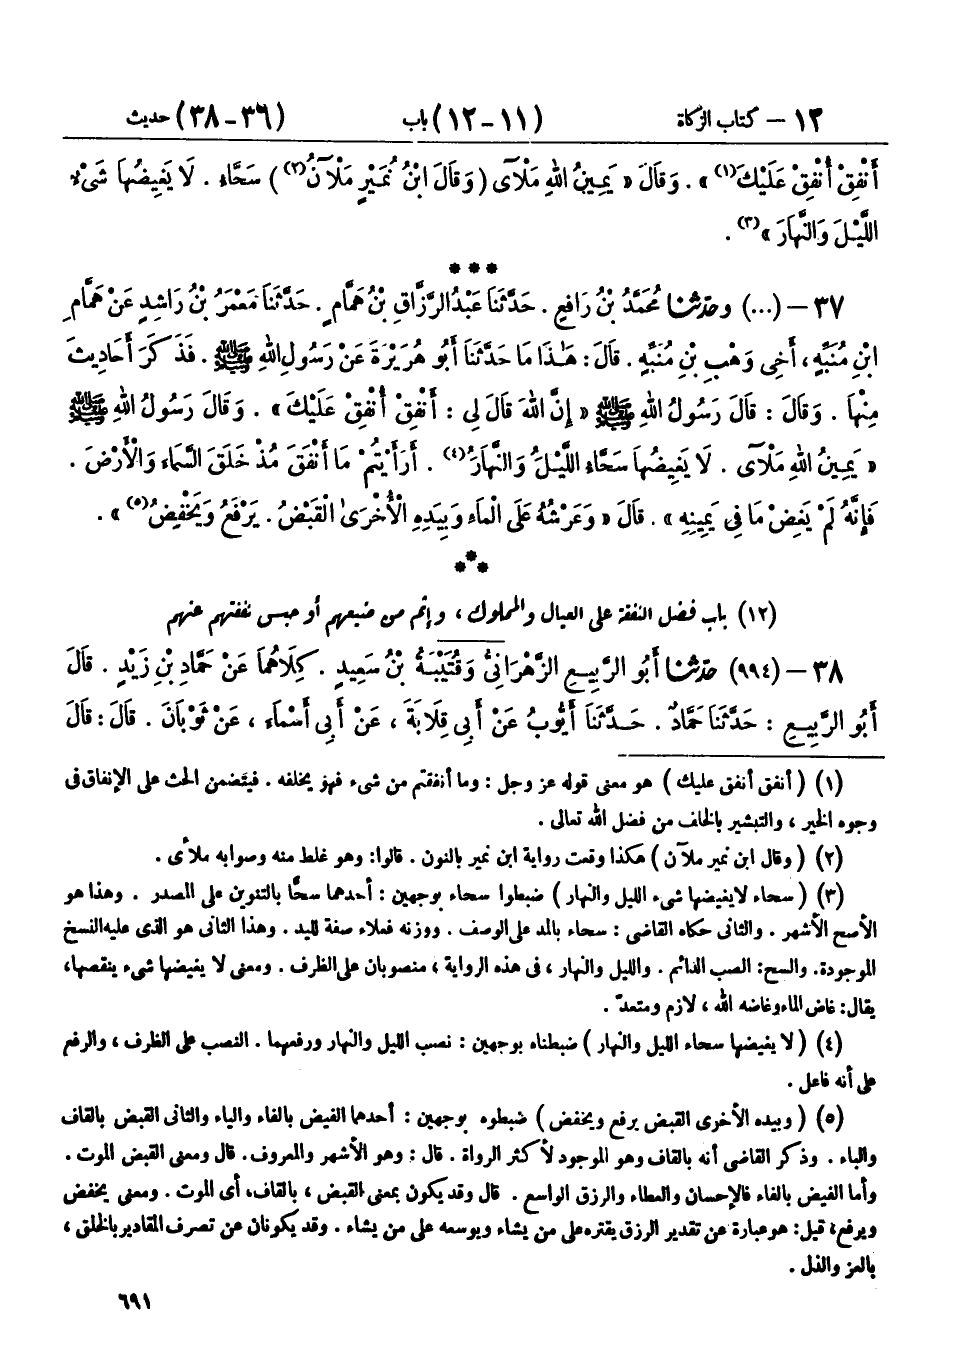 ١٢ — كتاب الزكاة (١١-١٢) باب (٣٦-٣٨) حديث
أَنْفِقْ أُنْفِقْ عَلَيْكَ(١)» . وَقَالَ « يَمِينُ اللهِ مَلْآى (وَقَالَ ابْنُ نُمَيْرٍ مَلْآنُ(٢)) سَحَّاءِ . لَا يَغِيضُهَا شَىْءٌ
اللَّيْلَ وَالنَّهَارَ »(٣) .
***
٣٧ — (...) وحَدَّثَنَا مُحَمَّدُ بْنُ رَافِعٍ . حَدَّثَنَا عَبْدُ الرَّزَّاقِ بْنُ هَمَّامٍ . حَدَّثَنَا مَعْمَرُ بْنُ رَاشِدٍ عَنْ هَمَّامِ
ابْنِ مُنَبِّهٍ ، أَخِى وَهْبِ بْنِ مُنَبِّهٍ . قَالَ : هٰذَا مَا حَدَّثَنَا أَبُو هُرَيْرَةَ عَنْ رَسُولِ اللهِ ﷺ . فَذَكَرَ أَحَادِيثَ
مِنْهَا . وَقَالَ : قَالَ رَسُولُ اللهِ ﷺ « إِنَّ اللهَ قَالَ لِى : أَنْفِقْ أُنْفِقْ عَلَيْكَ » . وَقَالَ رَسُولُ اللهِ ﷺ
« يَمِينُ اللهِ مَلْآى . لَا يَغِيضُهَا سَحَّاءِ اللَّيْلُ وَالنَّهَارُ(٤) . أَرَأَيْتُمْ مَا أَنْفَقَ مُذْ خَلَقَ السَّمَاءَ وَالْأَرْضَ .
فَإِنَّهُ لَمْ يَغِضْ مَا فِى يَمِينِهِ » . قَالَ « وَعَرْشُهُ عَلَى الْمَاءِ وَبِيَدِهِ الْأُخْرَىٰ الْقَبْضُ . يَرْفَعُ وَيَخْفِضُ(٥) » .
***
(١٢) باب فضل النفقة على العيال والمملوك ، وإثم من ضيعهم أو حبس نفقتهم عنهم
٣٨ — (٩٩٤) حَدَّثَنَا أَبُو الرَّبِيعِ الزَّهْرَانِىُّ وَقُتَيْبَةُ بْنُ سَعِيدٍ . كِلَاهُمَا عَنْ حَمَّادِ بْنِ زَيْدٍ . قَالَ
أَبُو الرَّبِيعِ : حَدَّثَنَا حَمَّادٌ . حَدَّثَنَا أَيُّوبُ عَنْ أَبِى قِلَابَةَ ، عَنْ أَبِى أَسْمَاءَ ، عَنْ ثَوْبَانَ . قَالَ : قَالَ
(١) ( أنفق أنفق عليك ) هو معنى قوله عز وجل : وما أنفقتم من شىء فهو يخلفه . فيتضمن الحث على الإنفاق فى
وجوه الخير ، والتبشير بالخلف من فضل الله تعالى .
(٢) ( وقال ابن نمير ملآن ) هكذا وقعت رواية ابن نمير بالنون . قالوا : وهو غلط منه وصوابه ملأى .
(٣) ( سحاء لا يغيضها شىء الليل والنهار ) ضبطوا سحاء بوجهين : أحدهما سحًّا بالتنوين على المصدر . وهذا هو
الأصح الأشهر . والثانى حكاه القاضى : سحاء بالمد على الوصف . ووزنه فعلاء صفة لليد . وهذا الثانى هو الذى عليه النسخ
الموجودة. والسح: الصب الدائم . والليل والنهار ، فى هذه الرواية ، منصوبان على الظرف . ومعنى لا يغيضها شىء ينقصها،
يقال: غاض الماء وغاضه الله ، لازم ومتعدّ .
(٤) ( لا يغيضها سحاء الليل والنهار ) ضبطناه بوجهين : نصب الليل والنهار ورفعهما . النصب على الظرف ، والرفع
على أنه فاعل .
(٥) ( وبيده الأخرى القبض يرفع ويخفض ) ضبطوه بوجهين : أحدهما الفيض بالفاء والياء والثانى القبض بالقاف
والباء . وذكر القاضى أنه بالقاف وهو الموجود لأكثر الرواة . قال : وهو الأشهر والمعروف. قال ومعنى القبض الموت .
وأما الفيض بالفاء فالإحسان والعطاء والرزق الواسع . قال وقد يكون بمعنى القبض ، بالقاف، أى الموت . ومعنى يخفض
ويرفع، قيل: هو عبارة عن تقدير الرزق يقتره على من يشاء ويوسعه على من يشاء . وقد يكونان عن تصرف المقادير بالخلق ،
بالعز والذل .
٦٩١